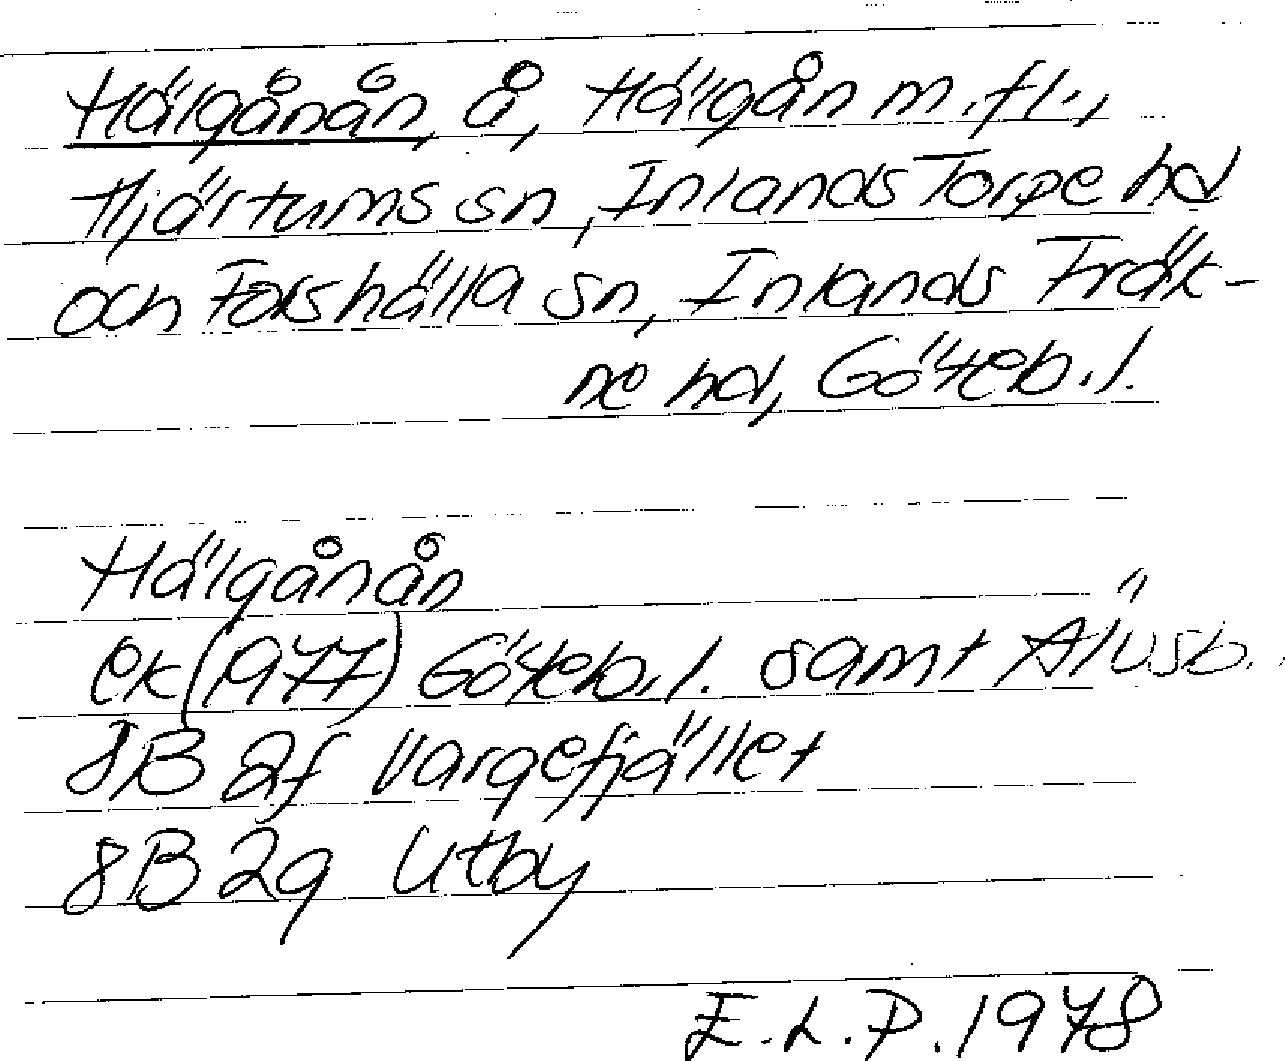 Hälgånån, å, Hälgån m.fl.,
Hjärtums sn, Inlands Torpe hd
och Forshälla sn, Inlands Fräk-
ne hd, Göteb.l.
Hälgånån
ek (1977) Göteb.l. samt Älvsb.
8B 2f Vargefjället
8B 2g Utby
E.L.P. 1978